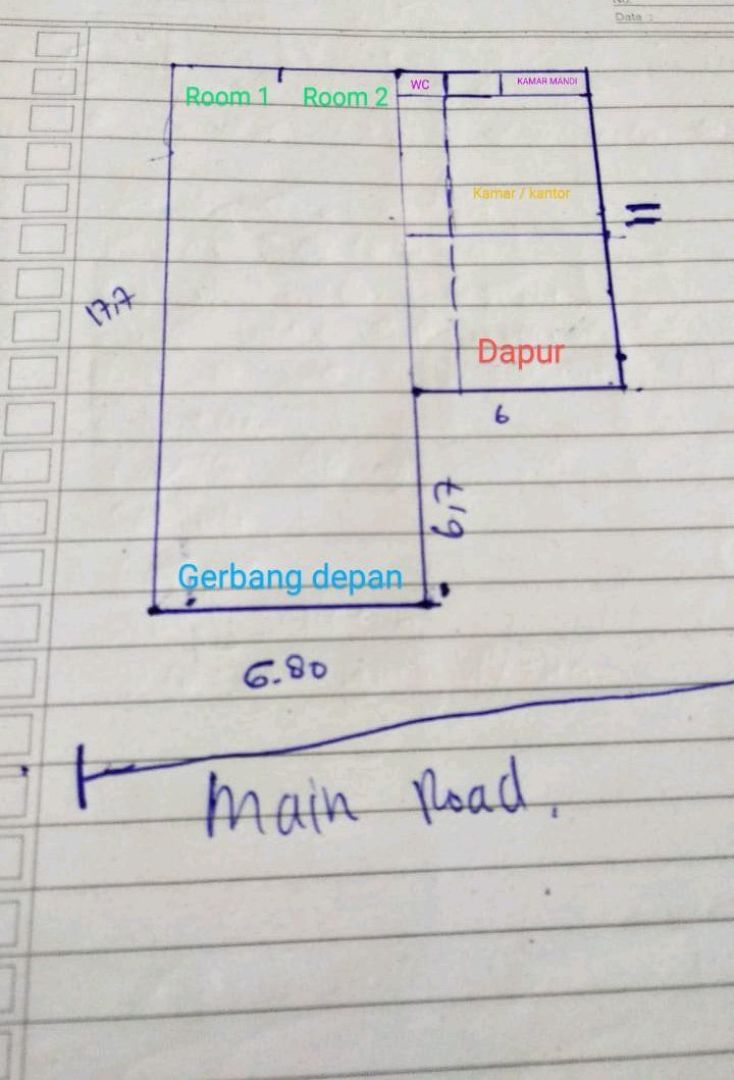 Data :
WC
KAMAR MANDI
Room 1
Room 2
Kamar / kantor
=
17,7
Dapur
6
6,7
Gerbang depan
6.80
Main Road.